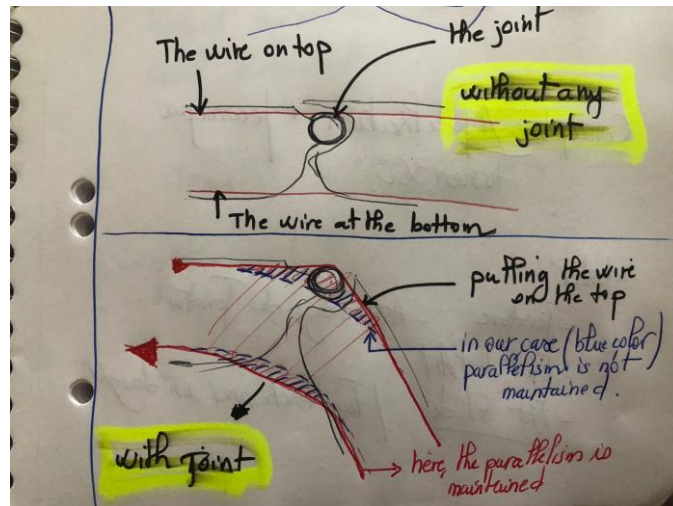 The wire on top
the joint
without any
joint
The wire at the bottom
pulling the wire
on the top
in our case (blue color)
parallelism is not
maintained.
with joint
here, the parallelism is
maintained